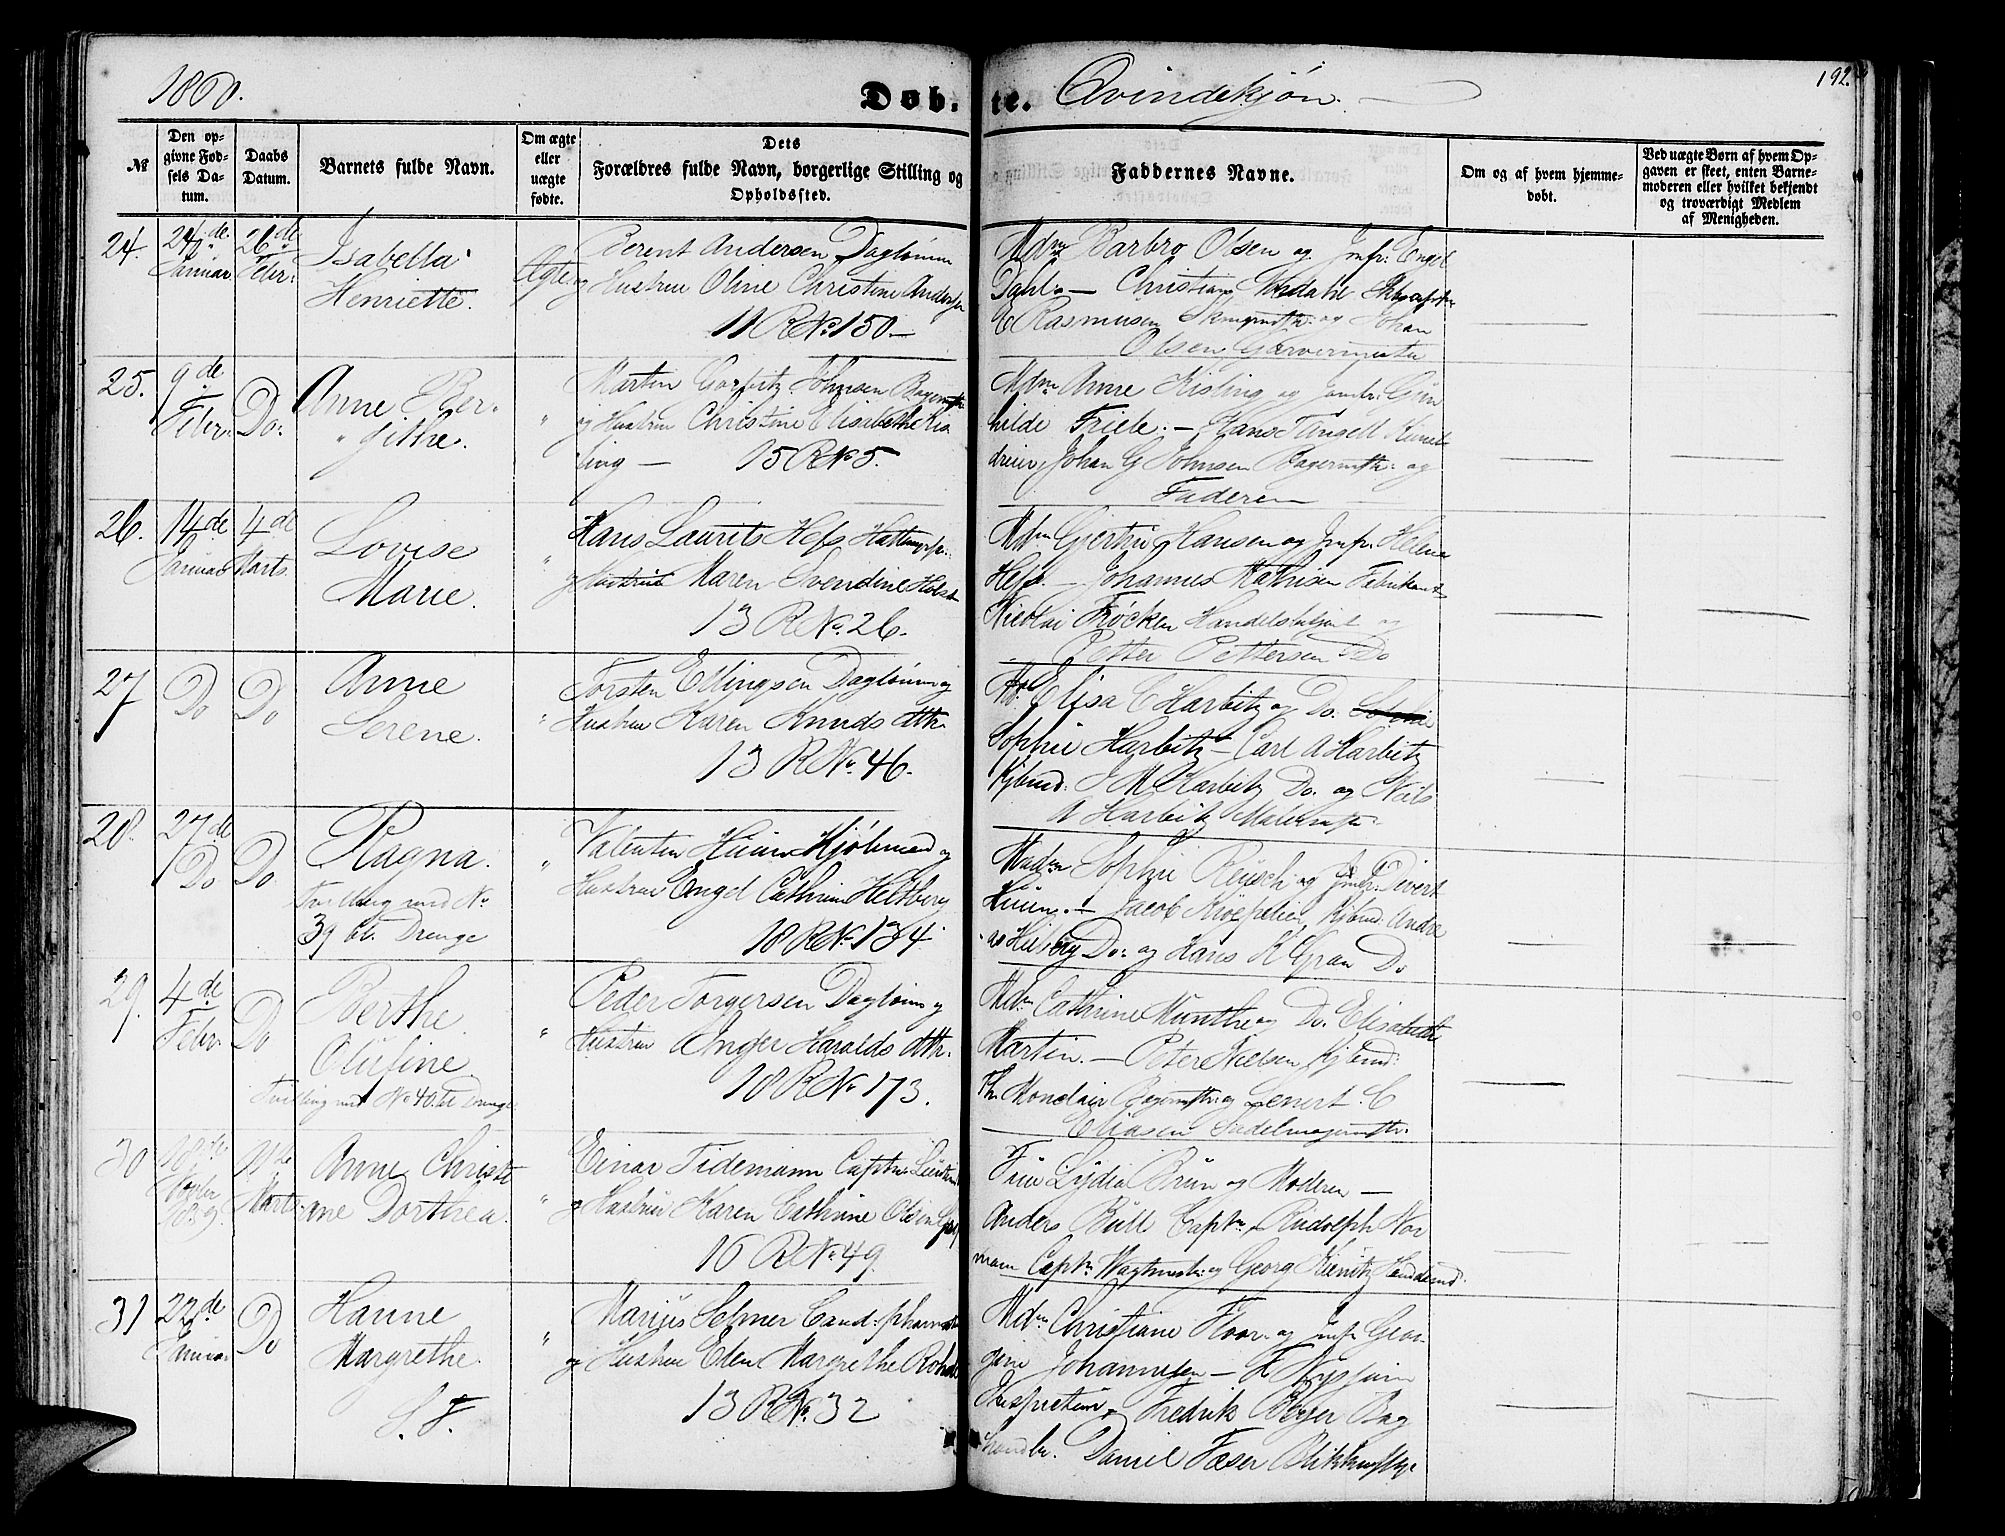 1860.
Døb.
te.
Qvindekjøn.
192.
No
Den op-
givne Fød-
sels Da-
tum.
Daabs
Datum.
Barnets fulde Navn.
Om ægte
eller
uægte
fødte.
Dets
Forældres fulde Navn, borgerlige Stilling og
Opholdssted.
Faddernes Navne.
Om og af hvem hjemme-
døbt.
Ved uægte Børn af hvem Op-
gaven er skeet, enten Barne-
moderen eller hvilket bekjendt
og troværdigt Medlem
af Menigheden.
24.
24de
Januar
26de
Febr.
Isabella
Henriette.
Ægte
Berent Andersen Daglønn
og Hustru Oline Christine Andersen
11 R No 150
Mdm Barbro Olsen og Jmfr. Engel
Dahl — Christian
C Rasmusen og Johan
Olsen Garvermester
25.
9de
Febr.
Do:
Anne Ber-
githe.
"
Marten Johnsen
og Hustru Christine Elisabethe Kis
ling — 15 R No 5.
Mdm Anne Kisling og Jomfr. Gun
hilde Friele. — Hans Tangell Kunst
dreier, Johan G Johnsen Bagermstr. og
Faderen
26.
14de
Januar
4de
Marts.
Lovise
Marie.
"
Hans Laurits Hess
og Hustrue Maren Svendine Holst
13 R No. 26.
Mdm Gjertru Hansen og Jmfr. Helena
Hess. — Johannes Mathisen Fabrikant
Nicolai Frøcken og
Petter Pettersen Do
27
Do
Do
Anne
Serene.
"
Torsten Ellingsen Daglønn og
Hustru Karen Knuds dttr.
13 R No. 46.
Elisa C Harbitz og Do.
Sophie Harbitz — Carl A Harbitz
Kjbmd. J M Harbitz Do. og Neils
A Harbitz Malermstr.
28.
27de
Do
Do
Ragna.
Tvilling med No
39 bl. Drenge
"
Valentin Kjøbmand og
Hustrue Engel Cathrine Heltberg
18 R No. 134.
Madm Sophie Reusch og Jmfr. Divert
Jacob Kjbmd. Andre
as Do: og Hans K Gran Do
29.
4de
Febr.
Do
Berthe
Olufine.
Tvilling med No 40. bl Drenge
"
Peder Torgersen Daglønn og
Hustrue Inger Haralds dttr.
18 R No 173.
Mdm Cathrine Munthe og Do. Elisabeth
Martin. — Peter Nielsen Kjbmd:
Th. Monclair Bagermstr: og Lenert C
Eliasen Sadelmagermstr.
30
18de
Novbr
1859.
11te
Marts
Anne Christi
ane Dorthea.
"
Einar Tidemann Captn
og Hustrue Karen Cathrine
16 R No. 49.
Frue Lydia Brun og Moderen —
Anders Bull Captn. Rudolph Nor
mann Captn. Vagtmestr: og Georg
31
22de
Januar
Do
Hanne
Margrethe.
S. F.
"
Marius Selmer Cand: pharmac.
og Hustrue Elen Margrethe Rohde
13 R No. 32
Mdm Christiane Floor og Jmfr Geor-
gine Johannesen — F Nyssum
Inspecteur, Fredrik Beyer Bog
handler Daniel Faser